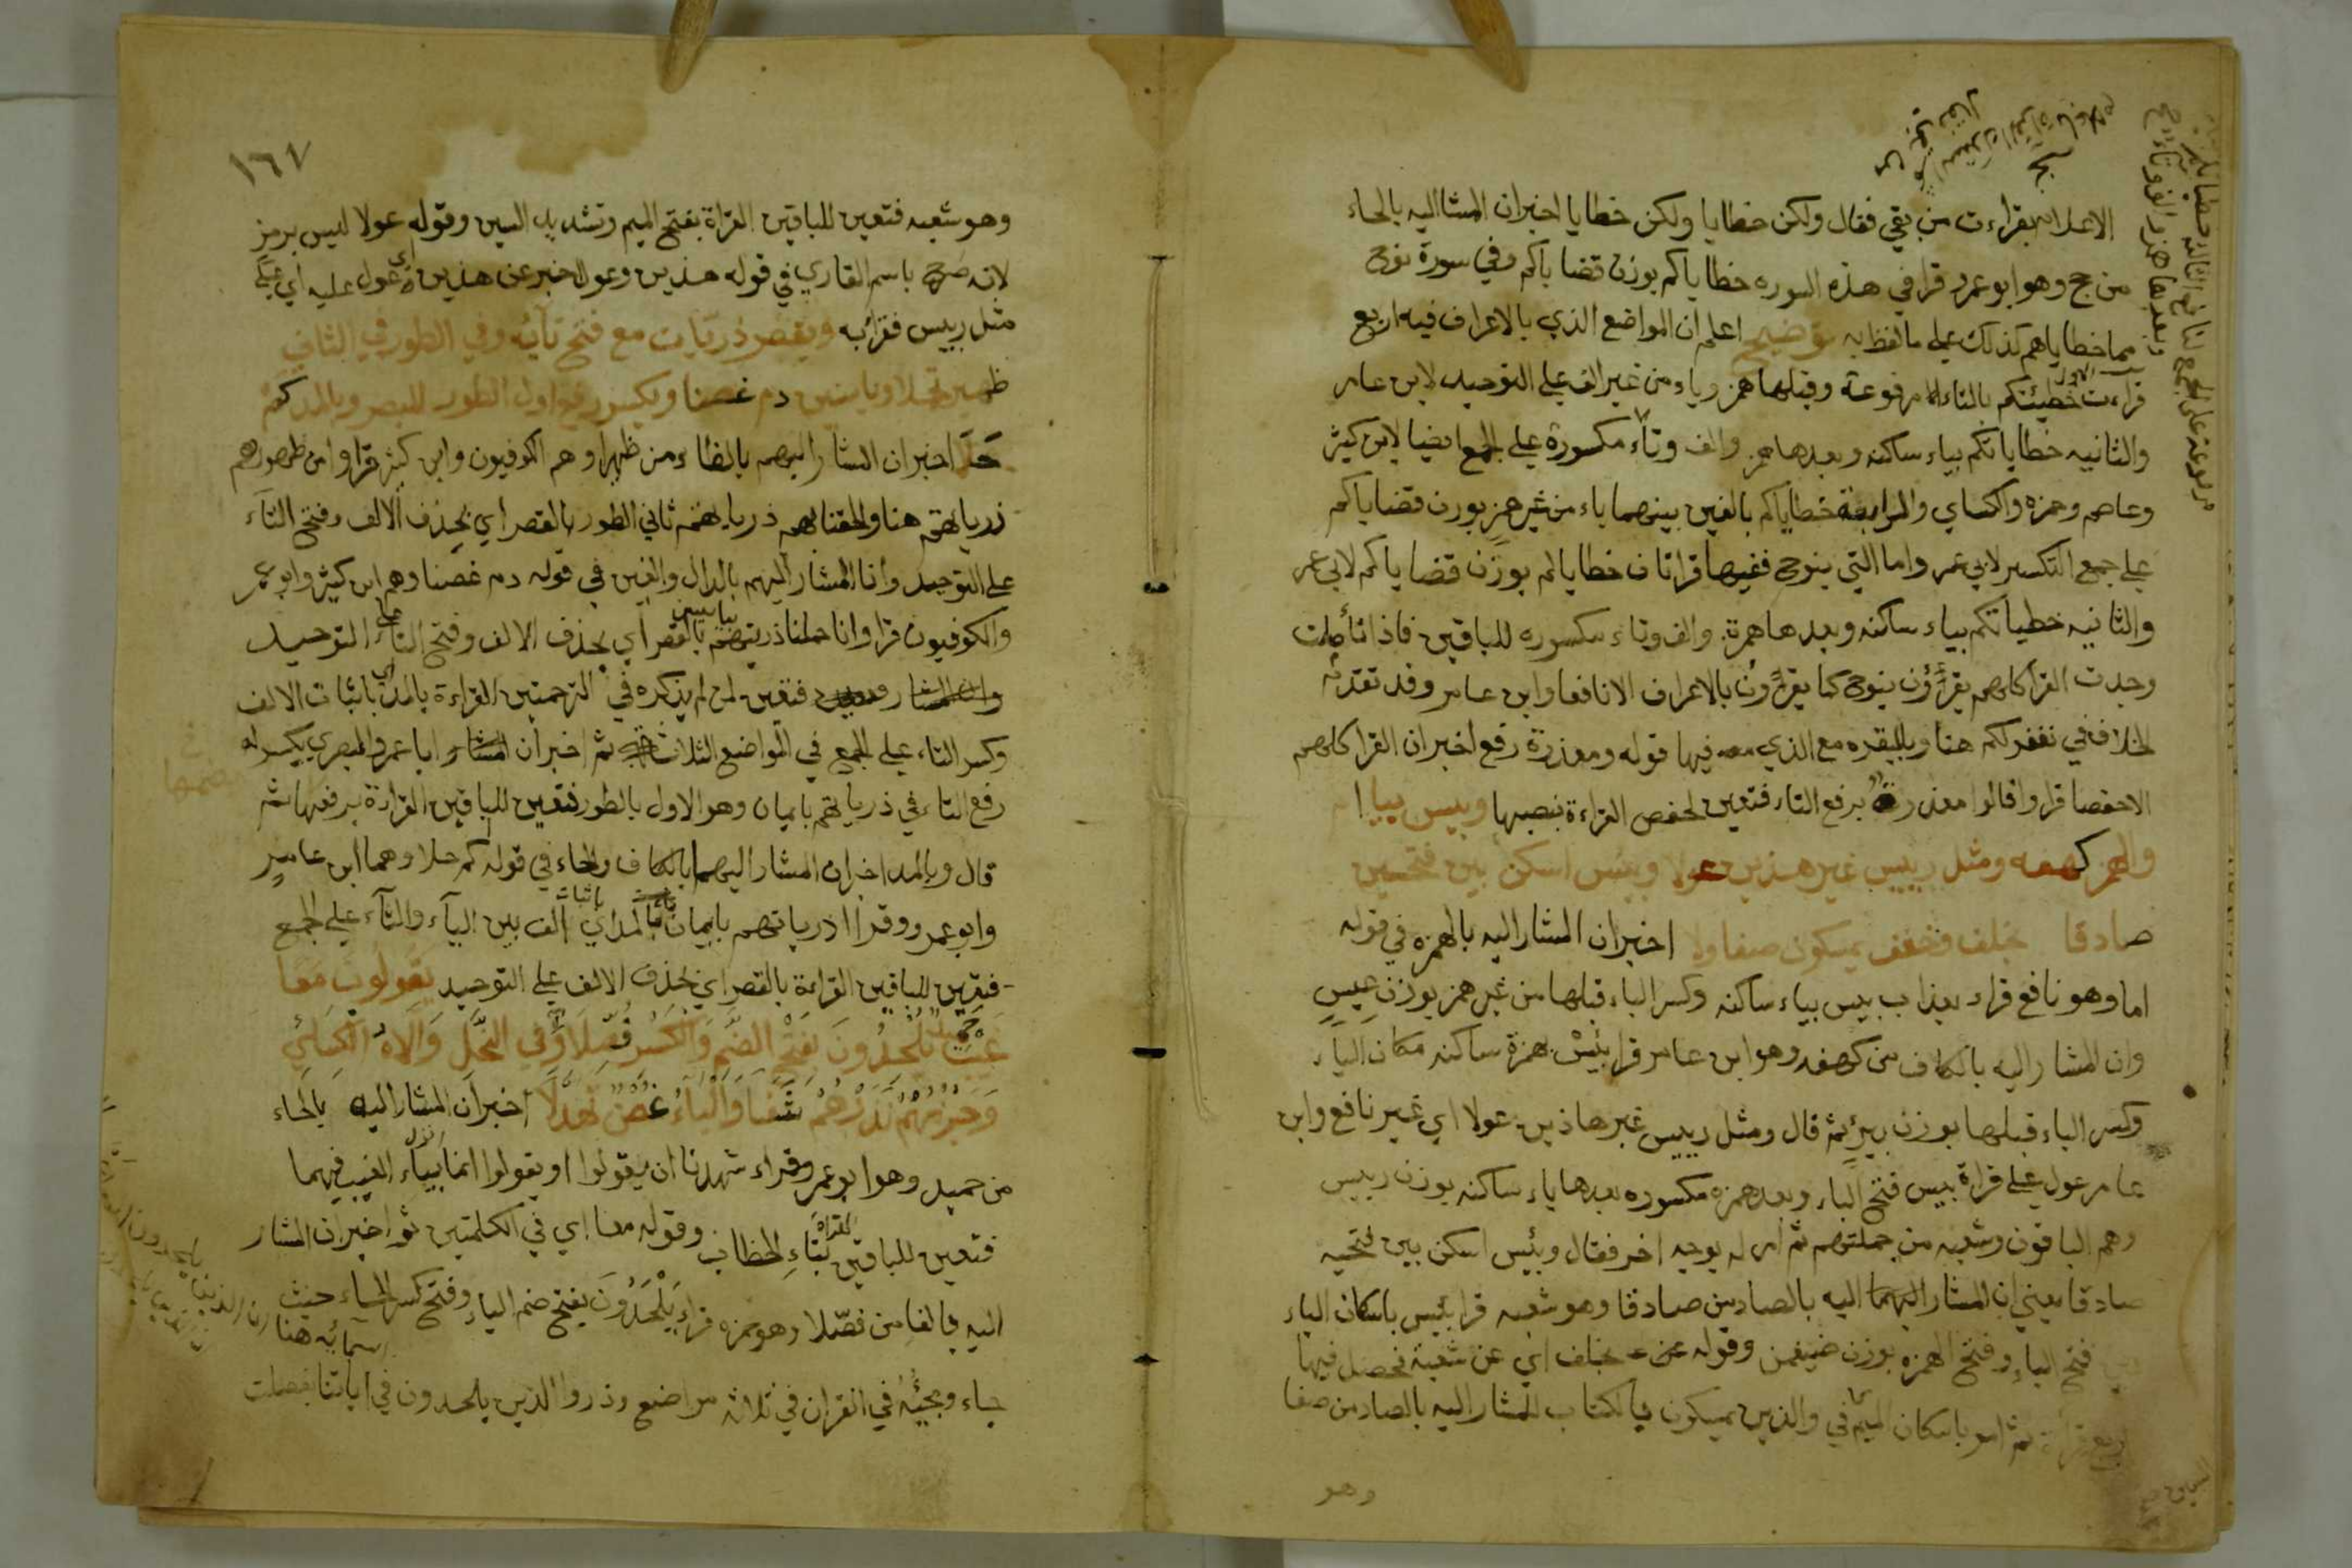 الاعلانه بقراءت من بقي فقال ولكن خطايا ولكن خطايا اخبران المشااليه بالحاء
من حج وهو ابوعمرو قرا في هذه السوره خطاياكم بوزن قضاياكم وفي سورة نوح
مما خطاياهم كذلك على مالفظ به توضيح اعلم ان المواضع الذي بالاعراف فيه اربع
قراءت الاولى خطيئتكم بالتاء مرفوعة وقبلها همز وياء من غير الف على التوحيد لابن عامر
والثانيه خطياتكم بياء ساكنه وبعدها همز والف وتاء مكسورة على الجمع ايضا لابن كيثر
وعاصم وحمزه والكساي والرابعة خطاياكم بالفين بينهما ياء من غير همز بوزن قضاياكم
على جمع التكسير لابي عمر واما التي بنوح ففيها قراتان خطاياكم بوزن قضاياكم لابي عمر
والثانيه خطياتكم بياء ساكنه وبعدها همزة والف وتاء مكسوره للباقين فاذا تأملت
وجدت القرا كلهم يقرؤن بنوح كما يقرؤن بالاعراف الا نافعا وابن عامر وقد تقدم
الخلاف في نغفر لكم هنا وبالبقره مع الذي معه فيها قوله ومعذرة رفع اخبران القرا كلهم
الا حفصا قرا وا قالوا معذرة برفع التاء فتعين لحفص القراءة بنصبها وبيس بياء ام
والهمز كهفه ومثل رييس غير هذين عولا وبيئس اسكن بين فتحتين
صادقا بخلف وخفف يمسكون صفا ولا اخبران المشار اليه بالهمزه في قوله
اما وهو نافع قراء بعذاب بيس بياء ساكنه وكسر الباء قبلها من غير همز بوزن عيس
وان المشار اليه بالكاف من كهفه وهو ابن عامر قرا بئس بهمزة ساكنه مكان الياء
وكسر الباء قبلها بوزن بير ثم قال ومثل رييس غير هاذين عولا اي غير نافع وابن
عامر عول على قراة بيس فتح الباء وبعد همزه مكسوره بعدها ياء ساكنه بوزن رييس
وهم الباقون وشعبه من جملتهم ثم امر له بوجه اخر فقال وبيئس اسكن بين فتحتيه
صادقا يعني ان المشار اليهما اليه بالصادين صادقا وهو شعبه قرا بيئس باسكان الياء
فتح الباء وفتح الهمزه بوزن ضيغمن وقوله بخلف اي عن شعبة فحصل فيها
ثم امر باسكان الميم في والذين يمسكون بالكتاب للمشار اليه بالصاد من صفا
وهو
١٦٧
وهو شعبه فتعين للباقين القراة بفتح الميم وتشديد السين وقوله عولا ليس برمز
لانه صرح باسم القاري في قوله هذين وعولا خبر عن هذين اي عول عليه اي على
مثل رييس فقرا به ويقصر ذريات مع فتح تآئه وفي الطور في الثاني
ظهير تحملا وياسين دم غصنا ويكسر رفع اول الطور للبصر وبالمد كم
حلا اخبران المشار اليهم بالظاء من ظهيرا وهم الكوفيون وابن كيثر قرا وا من ظهورهم
ذرياتهم هنا والحقنا بهم ذرياتهم ثاني الطور بالقصر اي بحذف الالف وفتح التآء
على التوحيد وانا المشار اليهم بالدال والغين في قوله دم غصنا وهم ابن كيثر وابو عمر
والكوفيون قرا وا انا حملنا ذريتهم بياسين بالقصر اي بحذف الالف وفتح التاء على التوحيد
فتعين لمن لم يذكره في الترجمتين القراءة بالمد اي باثبات الالف
وكسر التاء على الجمع في المواضع الثلاث ثم اخبران ابا عمرو البصري يكسر
رفع التاء في ذرياتهم بايمان وهو الاول بالطور فتعين للباقين القراءة برفعها ثم
قال وبالمد اخبران المشار اليهما بالكاف والحاء في قوله كم حلا وهما ابن عامر
وابو عمرو وقراا ذرياتهم بايمان بالمد اي باثبات الف بين اليآء والتآء على الجمع
فتعين للباقين القراءة بالقصر اي بحذف الالف على التوحيد يقولوا معا
غيب حميد يلحدون بفتح الضم والكسر فصلا وفي النحل والاه الكسائي
وجزمهم يذرهم شفا والياء غصن تهدلا اخبران المشار اليه بالحاء
من حميد وهو ابو عمرو قراء شهدنا ان يقولوا او يقولوا انما بياء الغيب فيهما
فتعين للباقين القراة بتاء الخطاب وقوله معا اي في الكلمتين ثم اخبران المشار
اليه بالفا من فصلا وهو حمزه قراء يلحدون بفتح ضم الياء وفتح كسر الحاء حيث
جاء ومجيئه في القران في ثلاثه مواضع وذروا الذين يلحدون في اسمائه هنا ان الذين يلحدون في اياتنا بفصلت